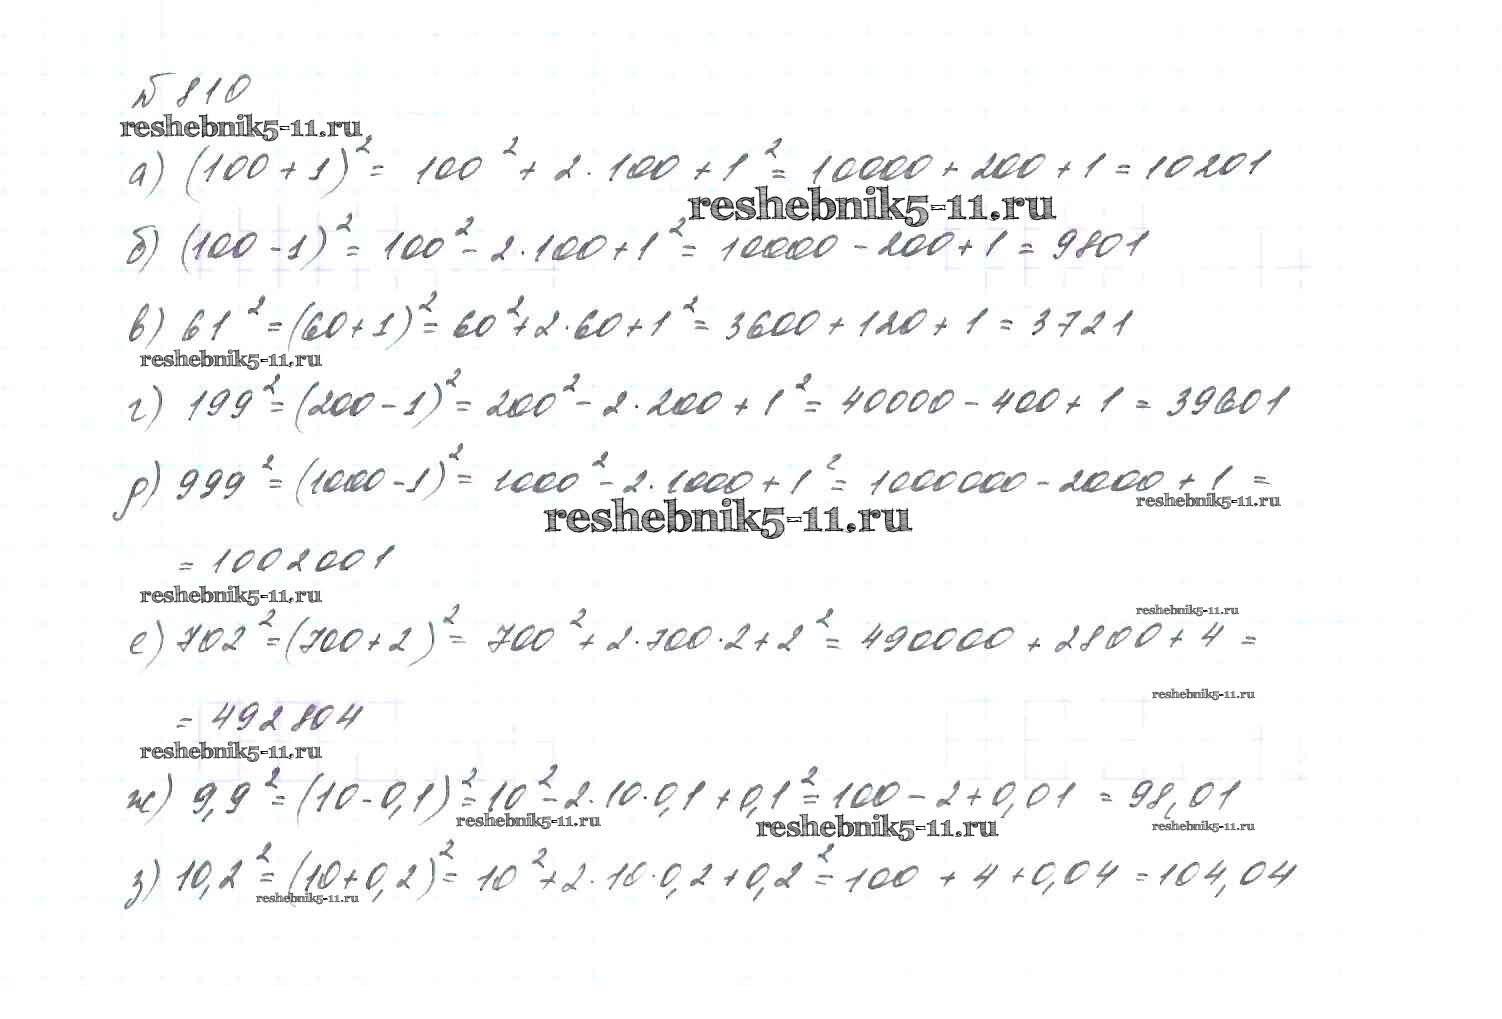 № 810
reshebnik5-11.ru
а) (100 + 1)² = 100² + 2 · 100 + 1² = 10000 + 200 + 1 = 10201
reshebnik5-11.ru
б) (100 - 1)² = 100² - 2 · 100 + 1² = 10000 - 200 + 1 = 9801
в) 61² = (60 + 1)² = 60² + 2 · 60 + 1² = 3600 + 120 + 1 = 3721
reshebnik5-11.ru
г) 199² = (200 - 1)² = 200² - 2 · 200 + 1² = 40000 - 400 + 1 = 39601
д) 999² = (1000 - 1)² = 1000² - 2 · 1000 + 1² = 1000000 - 2000 + 1 =
reshebnik5-11.ru
reshebnik5-11.ru
= 1002001
reshebnik5-11.ru
reshebnik5-11.ru
е) 702² = (700 + 2)² = 700² + 2 · 700 · 2 + 2² = 490000 + 2800 + 4 =
reshebnik5-11.ru
= 492804
reshebnik5-11.ru
ж) 9,9² = (10 - 0,1)² = 10² - 2 · 10 · 0,1 + 0,1² = 100 - 2 + 0,01 = 98,01
reshebnik5-11.ru
reshebnik5-11.ru
reshebnik5-11.ru
з) 10,2² = (10 + 0,2)² = 10² + 2 · 10 · 0,2 + 0,2² = 100 + 4 + 0,04 = 104,04
reshebnik5-11.ru